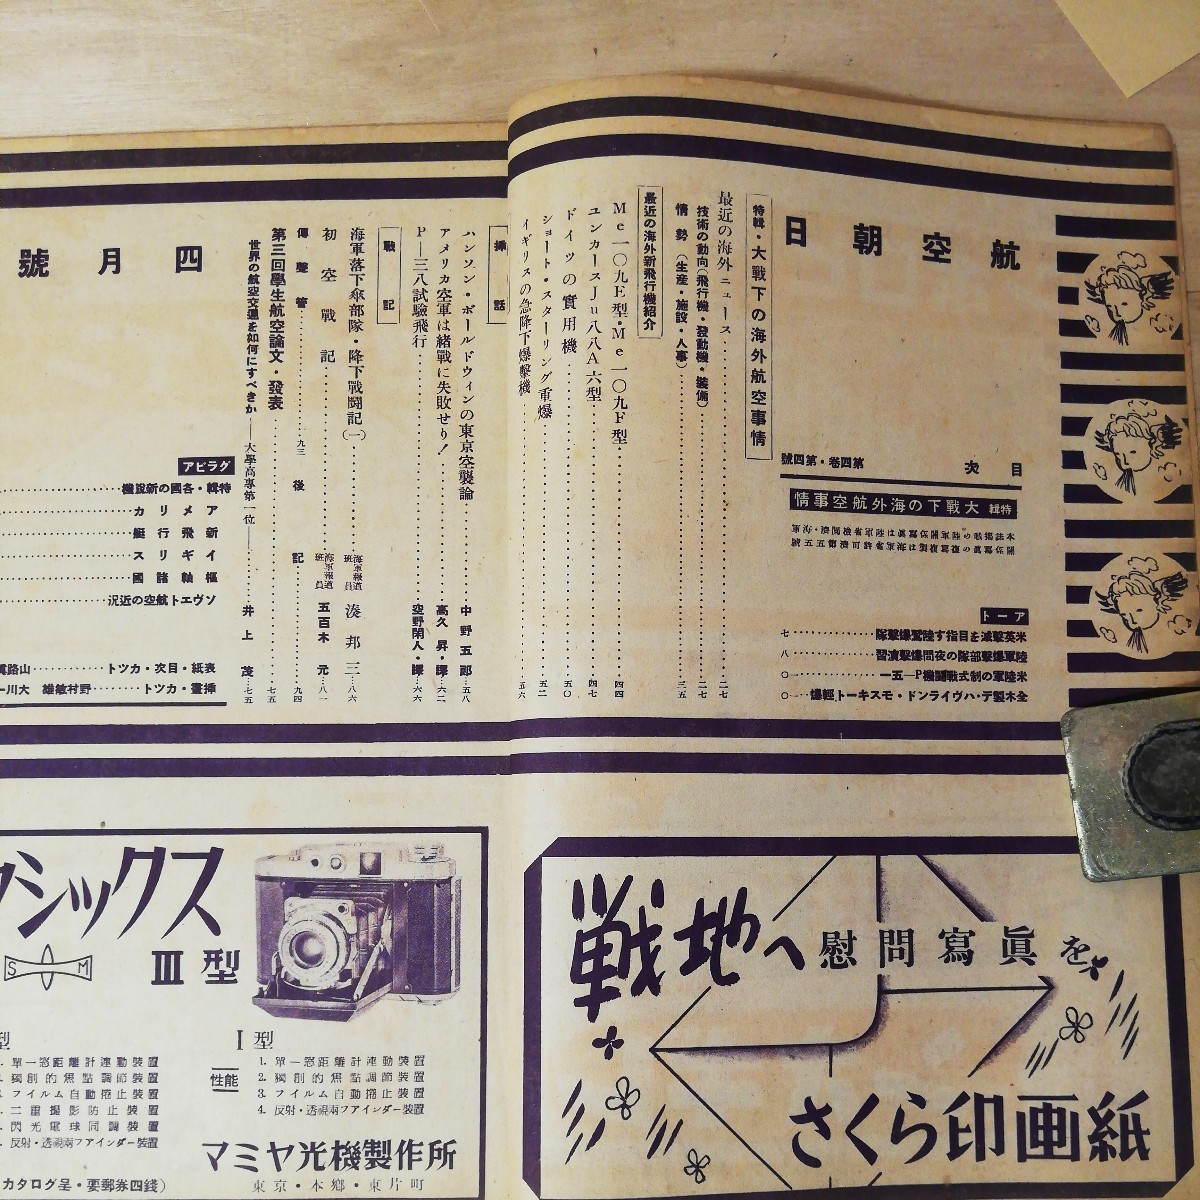 航空朝日
目次
第四卷・第四號
特輯 大戰下の海外航空事情
アート
米英擊滅を目指す陸鷲爆擊隊…………七
陸軍爆擊部隊の夜間爆擊演習…………八
米陸軍の制式戰鬪機P—五一
全木製デ・ハヴィランド・モスキート輕爆
特輯・大戰下の海外航空事情
最近の海外ニュース……二七
技術の動向(飛行機・發動機・裝備)
情勢(生産・施設・人事)……三五
最近の海外新飛行機紹介
Me一〇九E型・Me一〇九F型……四四
ユンカースJu八八A六型……四七
ドイツの實用機……五〇
ショート・スターリング重爆……五二
イギリスの急降下爆擊機……五六
插話
ハンソン・ボールドウィンの東京空襲論……中野五郎……五八
アメリカ空軍は緖戰に失敗せり!……高久昇・譯……六二
P—三八試驗飛行……空野閑人・譯……六六
戰記
海軍落下傘部隊・降下戰鬪記(一)……海軍報道班員 湊邦三……八六
初空戰記……海軍報道班員 五百木元……八一
傳聲管……九三
後記……九四
第三回學生航空論文・發表……七五
世界の航空交通を如何にすべきか——大學高專第一位——……井上茂……七五
四月號
グラビア
特輯・各國の新銳機
アメリカ
新飛行艇
イギリス
樞軸諸國
ソヴエト航空の近況
表紙・目次・カツト……山路眞
插畫・カツト……野村敏雄 大川一
シックス
III型
S M
I型
性能
1. 單一窓距離計連動裝置
2. 獨創的焦點調節裝置
3. フイルム自動捲止裝置
4. 反射・透視兩フアインダー裝置
型
單一窓距離計連動裝置
獨創的焦點調節裝置
フイルム自動捲止裝置
二重撮影防止裝置
閃光電球同調裝置
反射・透視兩フアインダー裝置
マミヤ光機製作所
東京・本鄕・東片町
カタログ呈・要郵券四錢)
戦地へ慰問寫眞を
さくら印画紙